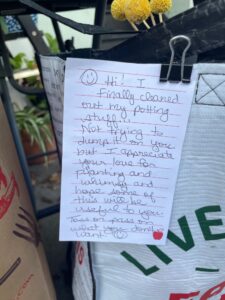 Hi! I
Finally cleaned
out my potting
stuff!!
Not trying to
dump it on you
but I appreciate
your love for
planting and
whimsy and
hope some of
this will be
useful to you
Toss or pass on
what you don't
want
LIVE